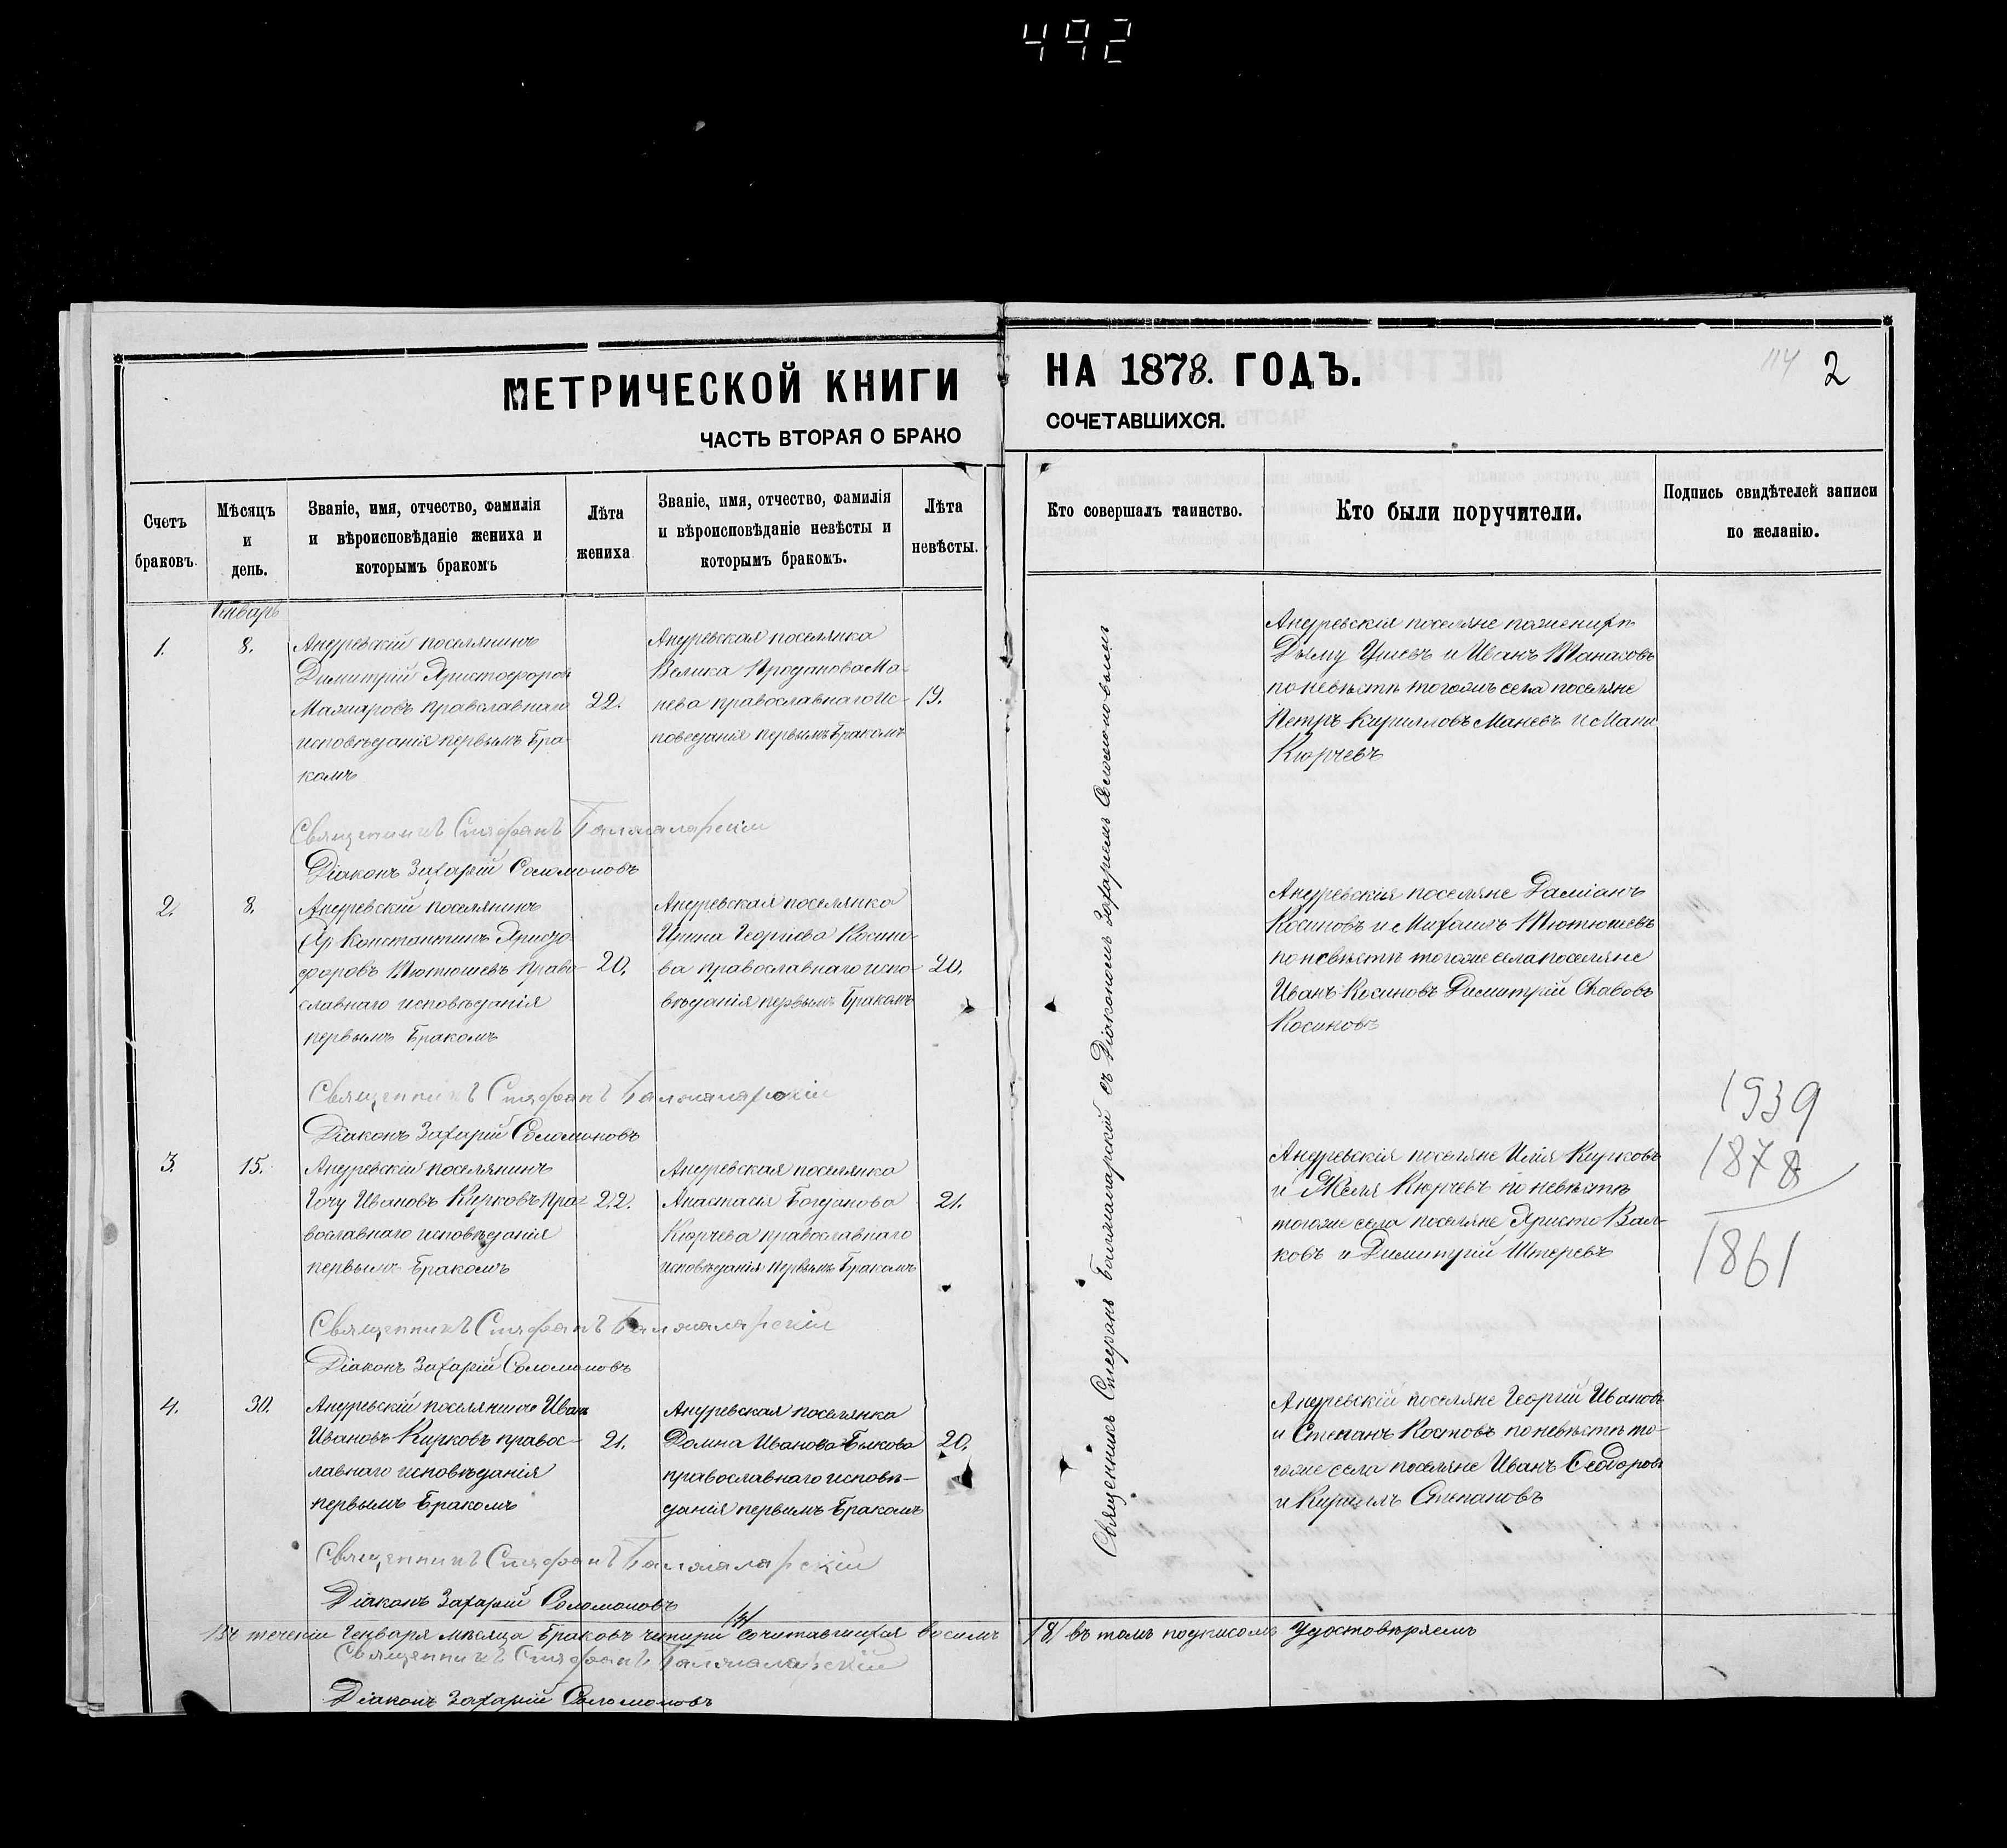 492
МЕТРИЧЕСКОЙ КНИГИ
НА 1878. ГОДЪ.
114
2
ЧАСТЬ ВТОРАЯ О БРАКО
СОЧЕТАВШИХСЯ.
Счетъ
браковъ.
Мѣсяцъ
и
день.
Званіе, имя, отчество, фамилія
и вѣроисповѣданіе жениха и
которымъ бракомъ
Лѣта
жениха
Званіе, имя, отчество, фамилія
и вѣроисповѣданіе невѣсты и
которымъ бракомъ.
Лѣта
невѣсты.
Кто совершалъ таинство.
Кто были поручители.
Подпись свидѣтелей записи
по желанію.
Генварь
1.
8.
Андревскій поселянинъ
Димитрій Христофоровъ
Мажаровъ православнаго
исповѣданія первымъ бра-
комъ
22.
Андревская поселянка
Велика Проданова Ма-
нева православнаго ис-
поведанія первымъ бракомъ
19.
Андревскія поселяне по женихѣ
и Иванъ Танасовъ
по невѣстѣ тогожъ села поселяне
Петръ Кирилловъ Маневъ и
Кюрчевъ
Священникъ Стефанъ
Діаконъ Захарій Соломоновъ
2.
8.
Андревскій поселянинъ
Константинъ Христо
форовъ Тютюшевъ право-
славнаго исповѣданія
первымъ бракомъ
20.
Андревская поселянка
Ирина Георгіева Косино-
ва православнаго испо-
вѣданія первымъ бракомъ
20.
Андревскія поселяне Даміанъ
Косиновъ и Михаилъ Тютюшевъ
по невѣстѣ тогоже села поселяне
Иванъ Косиновъ Димитрій Славовъ
Косиновъ
Священникъ Стефанъ
Діаконъ Захарій Соломоновъ
3.
15.
Андревскій поселянинъ
Гочу Ивановъ Кирковъ пра-
вославнаго исповѣданія
первымъ бракомъ
22.
Андревская поселянка
Анастасія Богданова
Кюрчева православнаго
исповѣданія первымъ бракомъ
21.
Андревскія поселяне Илія Кирковъ
и Желя Кюрчевъ по невѣстѣ
тогоже села поселяне Христо Вал-
ковъ и Димитрій Штеревъ
1939
1878
1861
Священникъ Стефанъ
Діаконъ Захарій Соломоновъ
4.
30.
Андревскій поселянинъ Иванъ
Ивановъ Кирковъ правос-
лавнаго исповѣданія
первымъ бракомъ
21.
Андревская поселянка
Домна Иванова Быкова
православнаго исповѣ-
данія первымъ бракомъ
20.
Андревскій поселяне Георгій Ивановъ
и Степанъ Костовъ по невѣстѣ то-
гоже села поселяне Иванъ Ѳеодоровъ
и Кириллъ Степановъ
Священникъ Стефанъ
Діаконъ Захарій Соломоновъ
Священникъ Стефанъ съ Діакономъ Захаріемъ Соломоновымъ
Въ теченіи Генваря мѣсяца браковъ четыри /4/ сочитавшихся восемь /8/ въ томъ подписомъ удостовѣряемъ
Священникъ Стефанъ
Діаконъ Захарій Соломоновъ